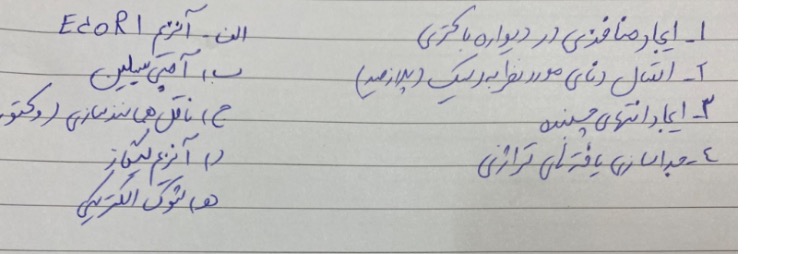 ۱- ایجاد منافذی در دیواره باکتری
۲- اتصال دنای مورد نظر به دیسک (پلازمید)
۳- ایجاد انتهای چسبنده
۴- جداسازی یاخته‌های تراژنی
الف- آنزیم EcoR1
ب) آمپی‌سیلین
ج) ناقل همانندسازی (وکتور
د) آنزیم لیگاز
ه) شوک الکتریکی